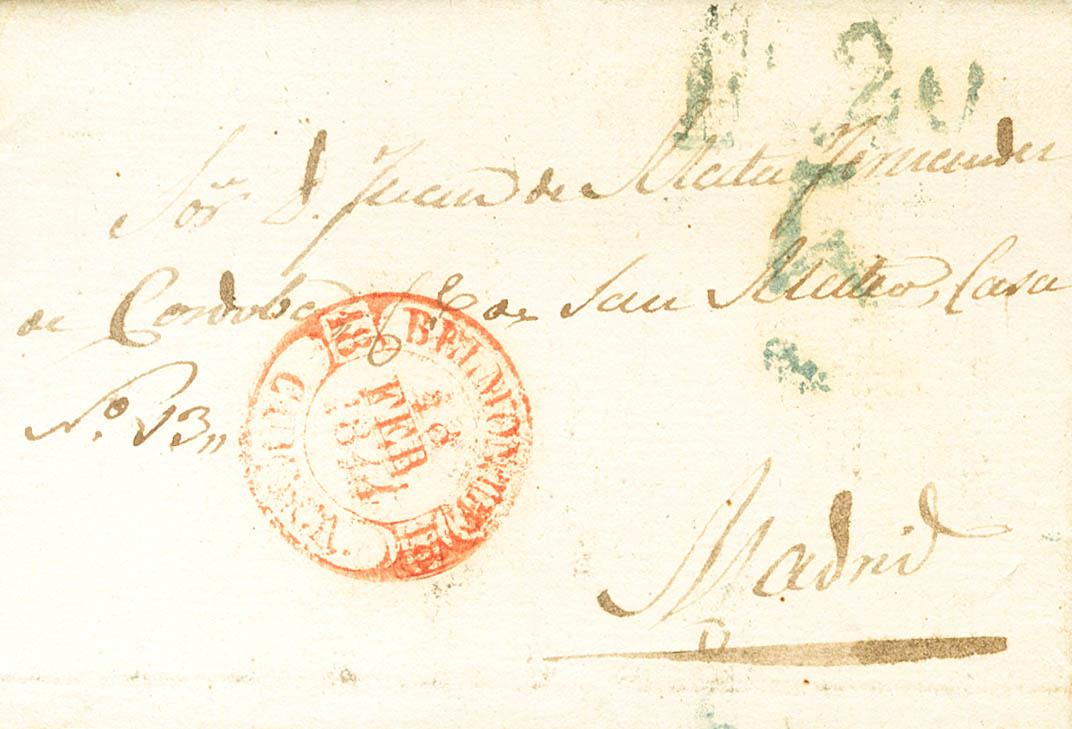 Nº 20
Sor. D. Juan de Mata Fernandez
de Cordoba C.e de San Mateo, Casa
N.o 13,,
BELMONTE
18
FEB
1844
CUENCA
Madrid